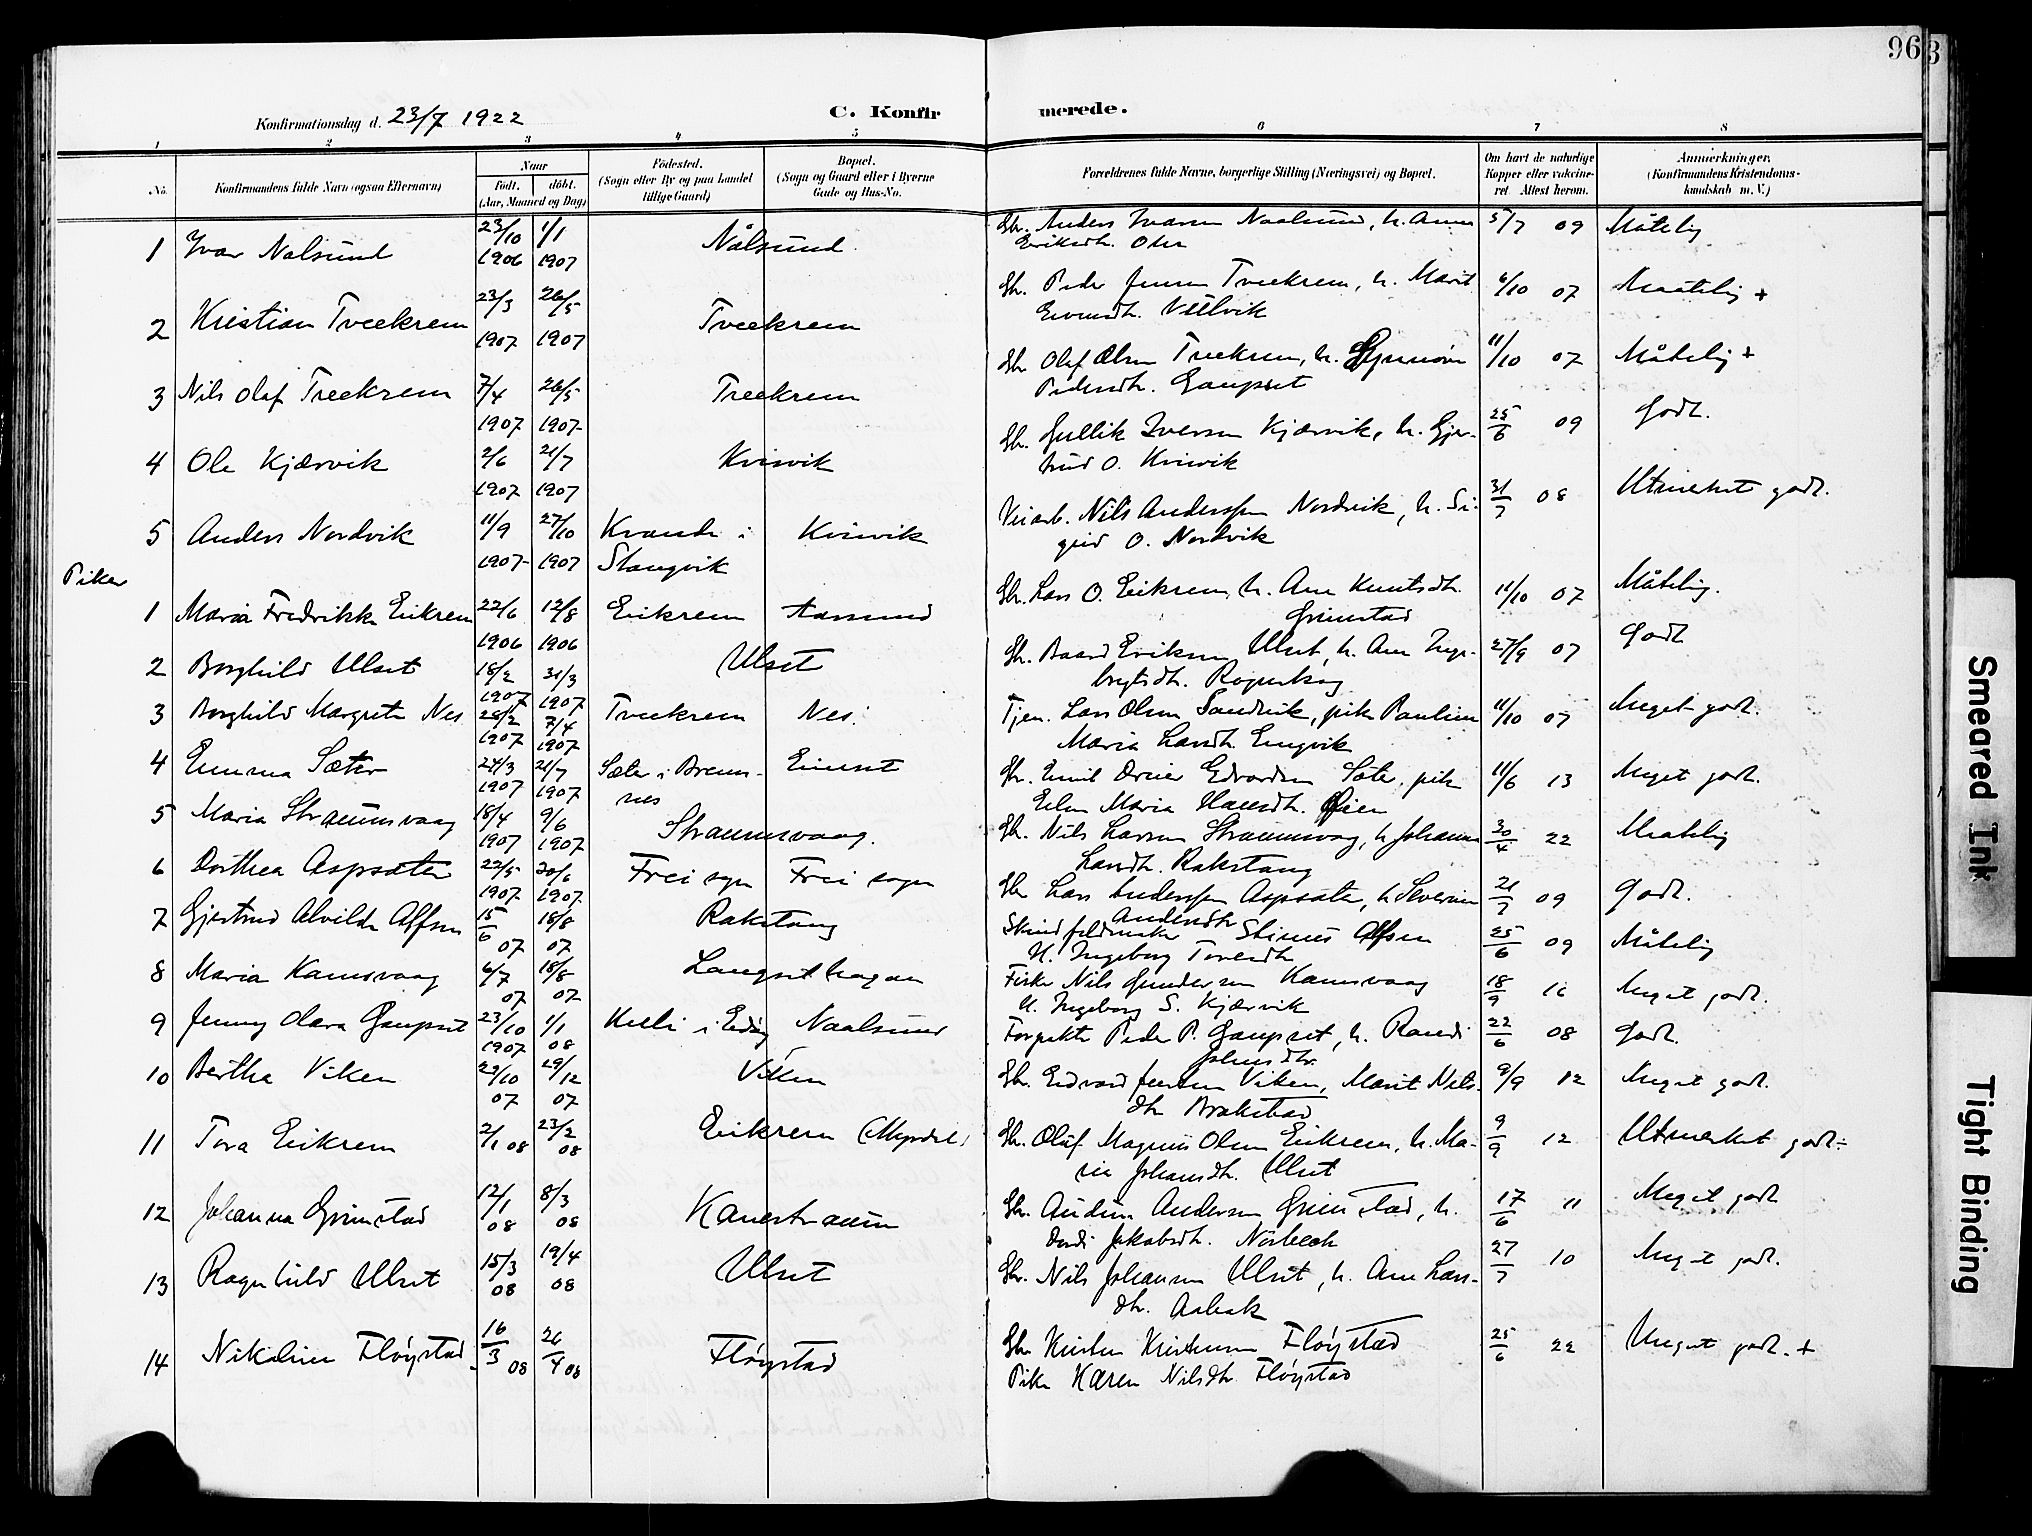 96
3
Konfirmationsdag d. 23/7 1922
C. Konfirmerede.
1 2 3 4 5 6 7 8
No.
Konfirmandens fulde Navn (ogsaa Efternavn)
Naar
født. døbt.
(Aar, Maaned og Dag)
Fødested.
(Sogn eller By og paa Landet
tillige Gaard)
Bopæl.
(Sogn og Gaard eller i Byerne
Gade og Hus-No.
Forældrenes fulde Navne, borgerlige Stilling (Næringsvei) og Bopæl.
Om havt de naturlige
Kopper eller vakcine-
ret Attest herom.
Anmærkninger.
(Konfirmandens Kristendoms-
kundskab m. V.)
1 Ivar Nålsund 23/10 1906 1/1 1907 Nålsund Gbr. Anders Ivarsen Naalsund, h. Anne 5/7 09 Måtelig
Eriksdtr.
2 Kristian Tveekrem 23/3 1907 26/5 1907 Tveekrem Gbr. Peder Jensen Tveekrem, h. Marit 6/10 07 Maatelig +
3 Nils Olaf Tveekrem 7/4 1907 26/5 1907 Tveekrem Gbr. Olaf Olsen Tveekrem, h. 11/10 07 Måtelig +
Pedersdtr. Gaupset
4 Ole Kjærvik 2/6 1907 21/7 1907 Kvisvik Gbr. Gullik Iversen Kjærvik, h. Gjer- 25/6 09 Godt.
trud O. Kvisvik
5 Anders Nordvik 11/9 1907 27/10 1907 Kvande i Stangvik Kvisvik Veiarb. Nils Anderssen Nordvik, h. Si- 31/7 08 Utmerket godt.
grid O. Nordvik
Piker
1 Maria Fredrikke Eikrem 22/6 1906 12/8 1906 Eikrem Aarsund Gbr. Lars O. Eikrem, h. Ane Knutsdtr. 11/10 07 Måtelig.
Grimstad
2 Borghild Ulset 18/2 1907 31/3 1907 Ulset Gbr. Baard Eriksen Ulset, h. Ane Inge- 27/9 07 Godt
brigtsdtr.
3 Borghild Margrete Nes 28/2 1907 7/4 1907 Tveekrem Nes. Tjen. Lars Olsen Sandvik, pike Pauline 11/10 07 Meget godt.
Maria Larsdtr. Engvik
4 Emma Sæter 24/3 1907 21/7 1907 Sæter i Brems-nes Einset Gbr. Emil Edvardsen Sæter, pike 11/6 13 Meget godt.
Maria Hansdtr. Øien
5 Maria Straumsvaag 18/4 1907 9/6 1907 Straumsvaag. Gbr. Nils Larsen Straumsvaag, h. Johanne 30/4 22 Maatelig
Larsdtr. Rakstang
6 Dorthea Aspsæter 22/5 1907 30/6 1907 Frei sogn Frei sogn Gbr. Lars Anderssen Aspsæter, h. Severine 21/7 09 Godt.
Andersdtr
7 Gjertrud Alvilde Alfsen 15/6 07 18/8 07 Rakstang Skindfeldmaker Stinus Alfsen 25/6 09 Måtelig
H. Ingeborg Toresdtr
8 Maria Kamsvaag 6/7 07 18/8 07 Langsethagan Fisker Nils Gundersen Kamsvaag 18/9 16 Meget godt.
H. Ingeborg S. Kjærvik
9 Jenny Olava Gaupset 23/10 1907 1/1 08 Naalsund Forpakter Peder P. Gaupset, h. Randi 22/6 08 Godt.
Johnsdtr.
10 Bertha Viken 22/10 07 29/12 07 Viken Gbr. Edvard Jensen Viken, Marit Nils- 9/9 12 Meget godt.
dtr Brakstad
11 Tora Eikrem 2/1 08 23/2 08 Eikrem (Myrdal) Gbr. Oluf Magnus Olsen Eikrem, h. Ma- 9/9 12 Utmerket godt.
rie Johansdtr. Ulset
12 Johanna Grimstad 12/1 08 8/3 08 Kanestraum Gbr. Audun Andersen Grimstad, h. 17/6 11 Meget godt
Dordi Jakobsdtr. Nosbech
13 Ragnhild Ulset 15/3 08 19/4 08 Ulset Gbr. Nils Johansen Ulset, h. Ane Lars- 27/7 10 Meget godt.
dtr. Aasbak
14 Nikoline Fløystad 16/3 08 26/4 08 Fløystad Gbr. Kristen Kristensen Fløystad 25/6 22 Meget godt. +
Pike Karen Nilsdtr. Fløystad
Smeared Ink
Tight Binding